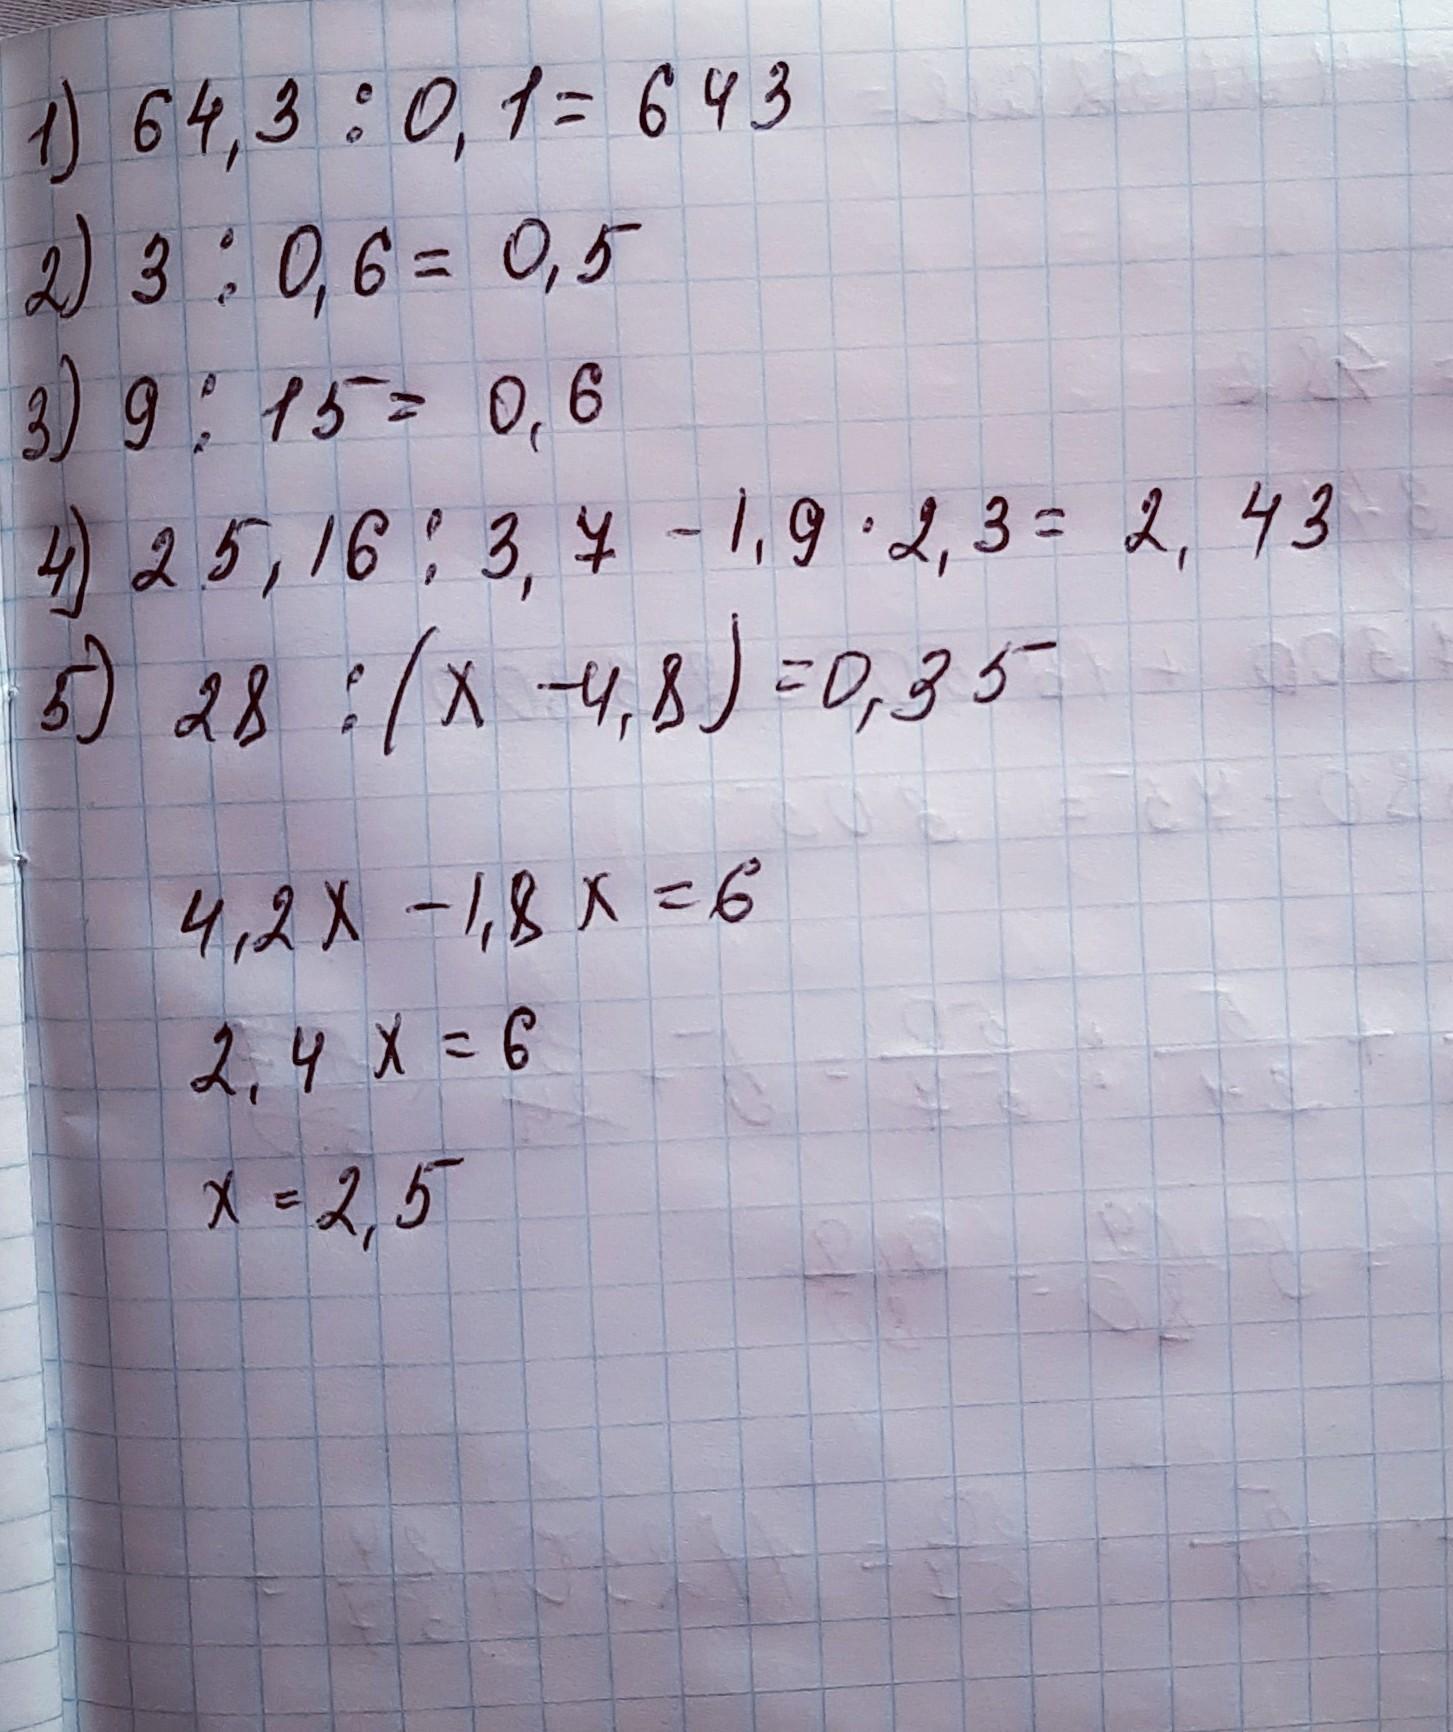 1) 64,3 : 0,1 = 643
2) 3 : 0,6 = 0,5
3) 9 : 15 = 0,6
4) 25,16 : 3,7 - 1,9 · 2,3 = 2,43
5) 28 : (x - 4,8) = 0,35
4,2x - 1,8x = 6
2,4x = 6
x = 2,5